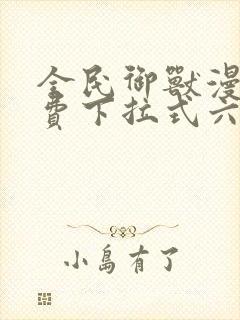 全民御獸漫
費下拉式六
小島有了